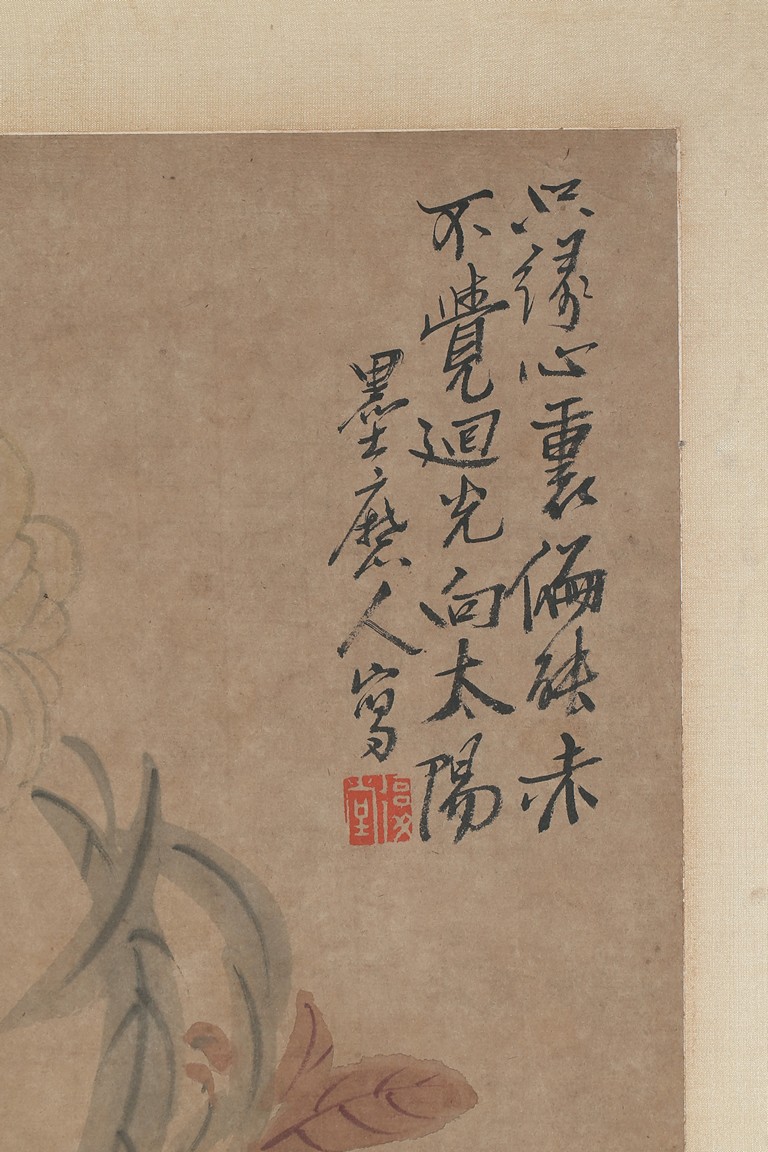 只緣心裏偏能赤
不覺迴光向太陽
墨磨人寫